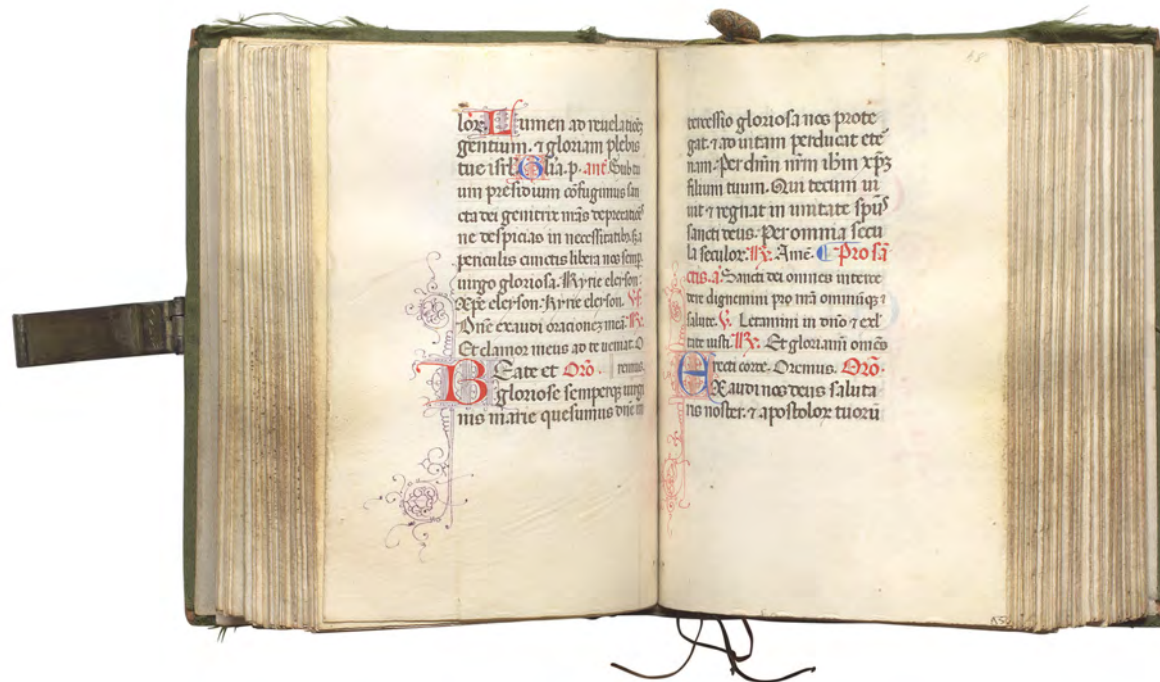 lor. Lumen ad reuelatioēꝫ
gentium. ⁊ gloriam plebis
tue isrl. Glia. p. anē. Sub tu
um presidium cōfugimus san
cta dei genitrix nr̄as deprecatiōes
ne despicias in necessitatibꝫ
periculis cunctis libera nos semp.
uirgo gloriosa. Kyrie eleyson.
Xp̄e eleyson. Kyrie eleyson. V̄.
Dn̄e exaudi orationeꝫ meā. R̄.
Et clamor meus ad te ueniat. O
Beate et Orō. remus.
gloriose semperqꝫ uirgi
nis marie quesumus dn̄e in
tercessio gloriosa nos prote
gat. ⁊ ad uitam perducat ete
nam. Per dn̄m nr̄m ihm̄ xp̄ꝫ
filium tuum. Qui tecum ui
uit ⁊ regnat in unitate spūs
sancti deus. Per omnia secu
la seculor. R̄. Amē. Pro sā
ctis. a. Sancti dei omnes interce
dere dignemini pro nr̄a omniūqꝫ
salute. V̄. Letamini in dn̄o ⁊ exl
tate iusti. R̄. Et gloriami om̄es
recti corde. Oremus. Orō.
EXaudi nos deus saluta
ris noster. ⁊ apostolor tuorū